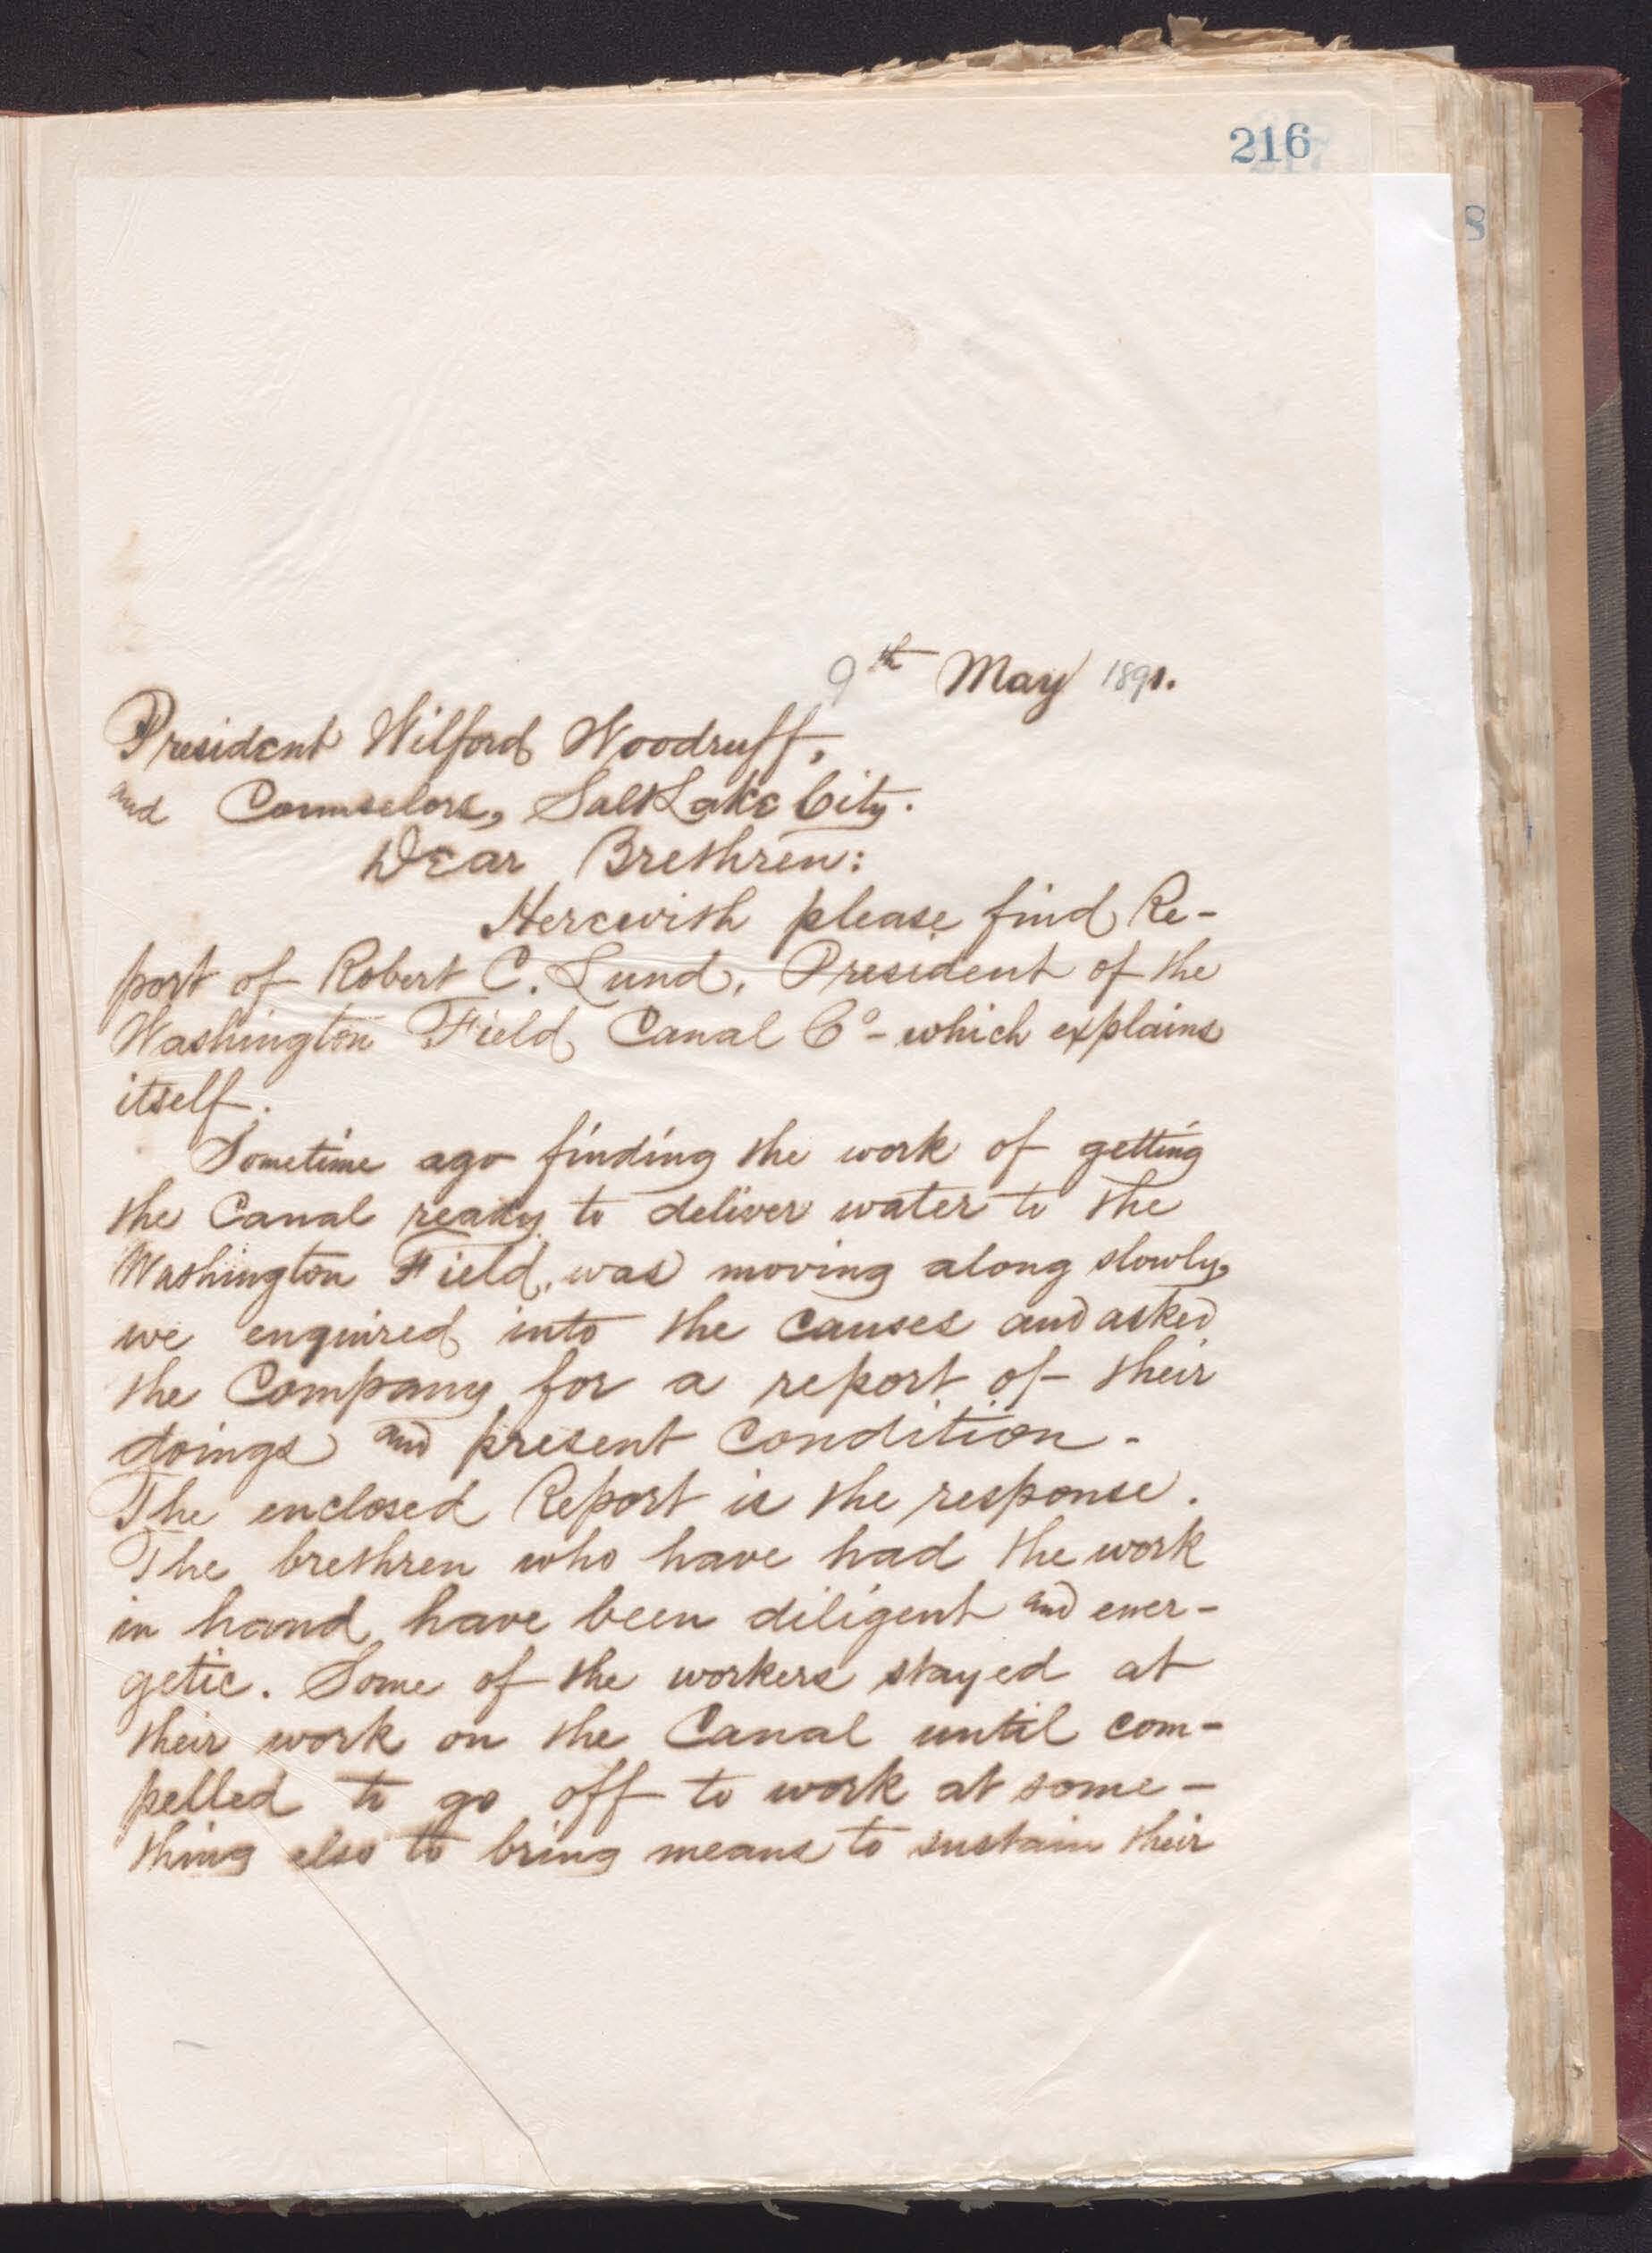 216
8
9th May 1891.
President Wilford Woodruff,
and Counselors, Salt Lake City.
Dear Brethren:
Herewith please find Re-
port of Robert C. Lund, President of the
Washington Field Canal Co- which explains
itself.
Sometime ago finding the work of getting
the Canal ready to deliver water to the
Washington Field, was moving along slowly,
we enquired into the causes and asked
the Company for a report of their
doings and present condition.
The enclosed Report is the response.
The brethren who have had the work
in hand have been diligent and ener-
getic. Some of the workers stayed at
their work on the Canal until com-
pelled to go off to work at some-
thing else to bring means to sustain their